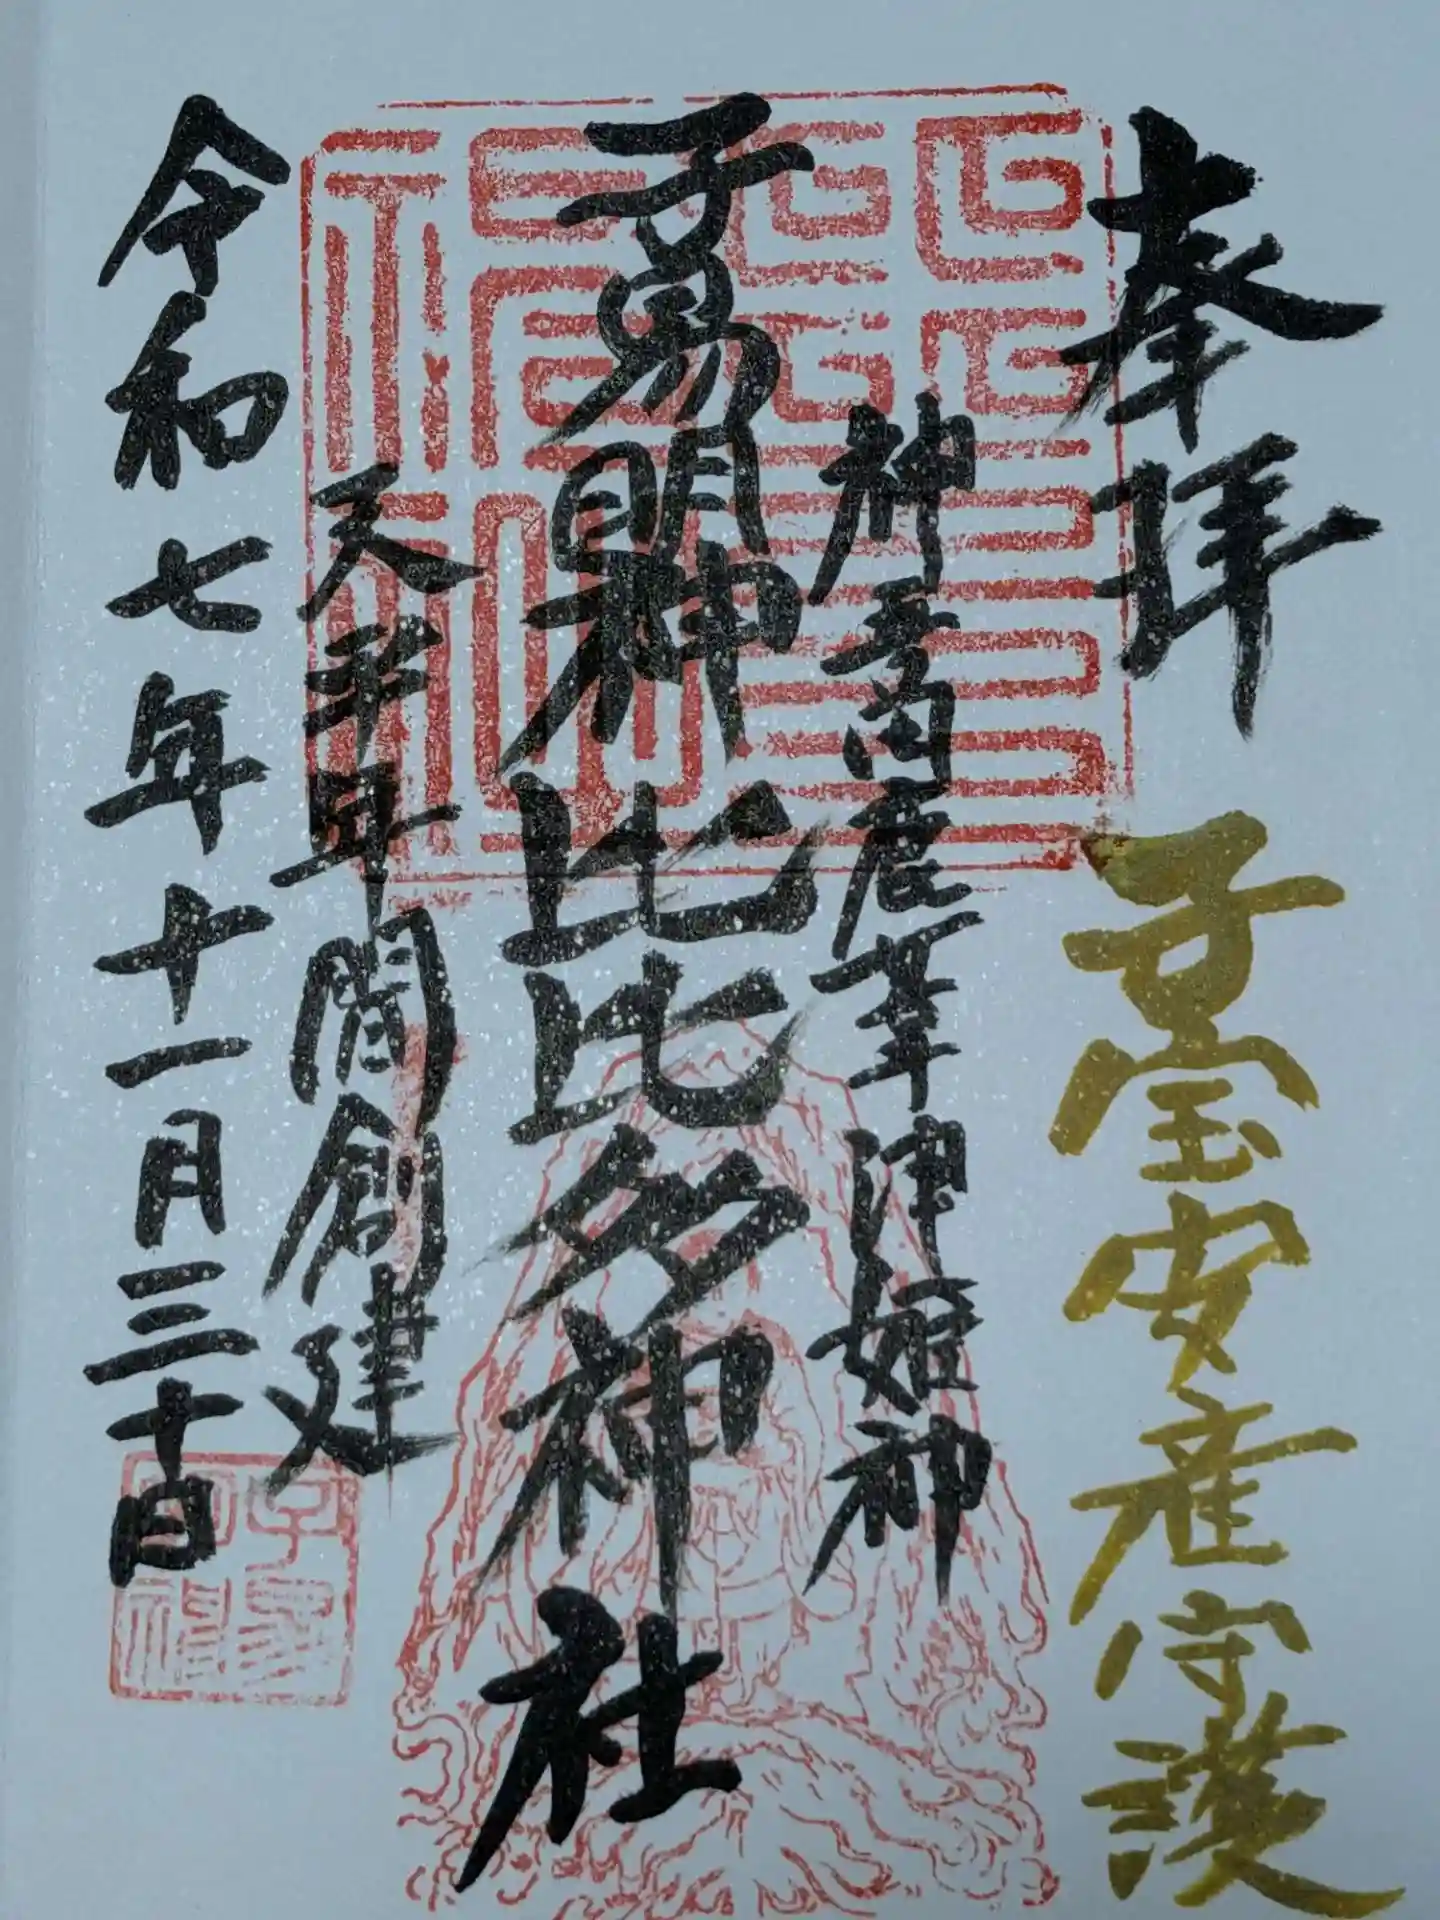 奉拝
子宝安産守護
神吾田鹿葦津姫神
子易明神
比比多神社
天平年間創建
令和七年十一月三十日